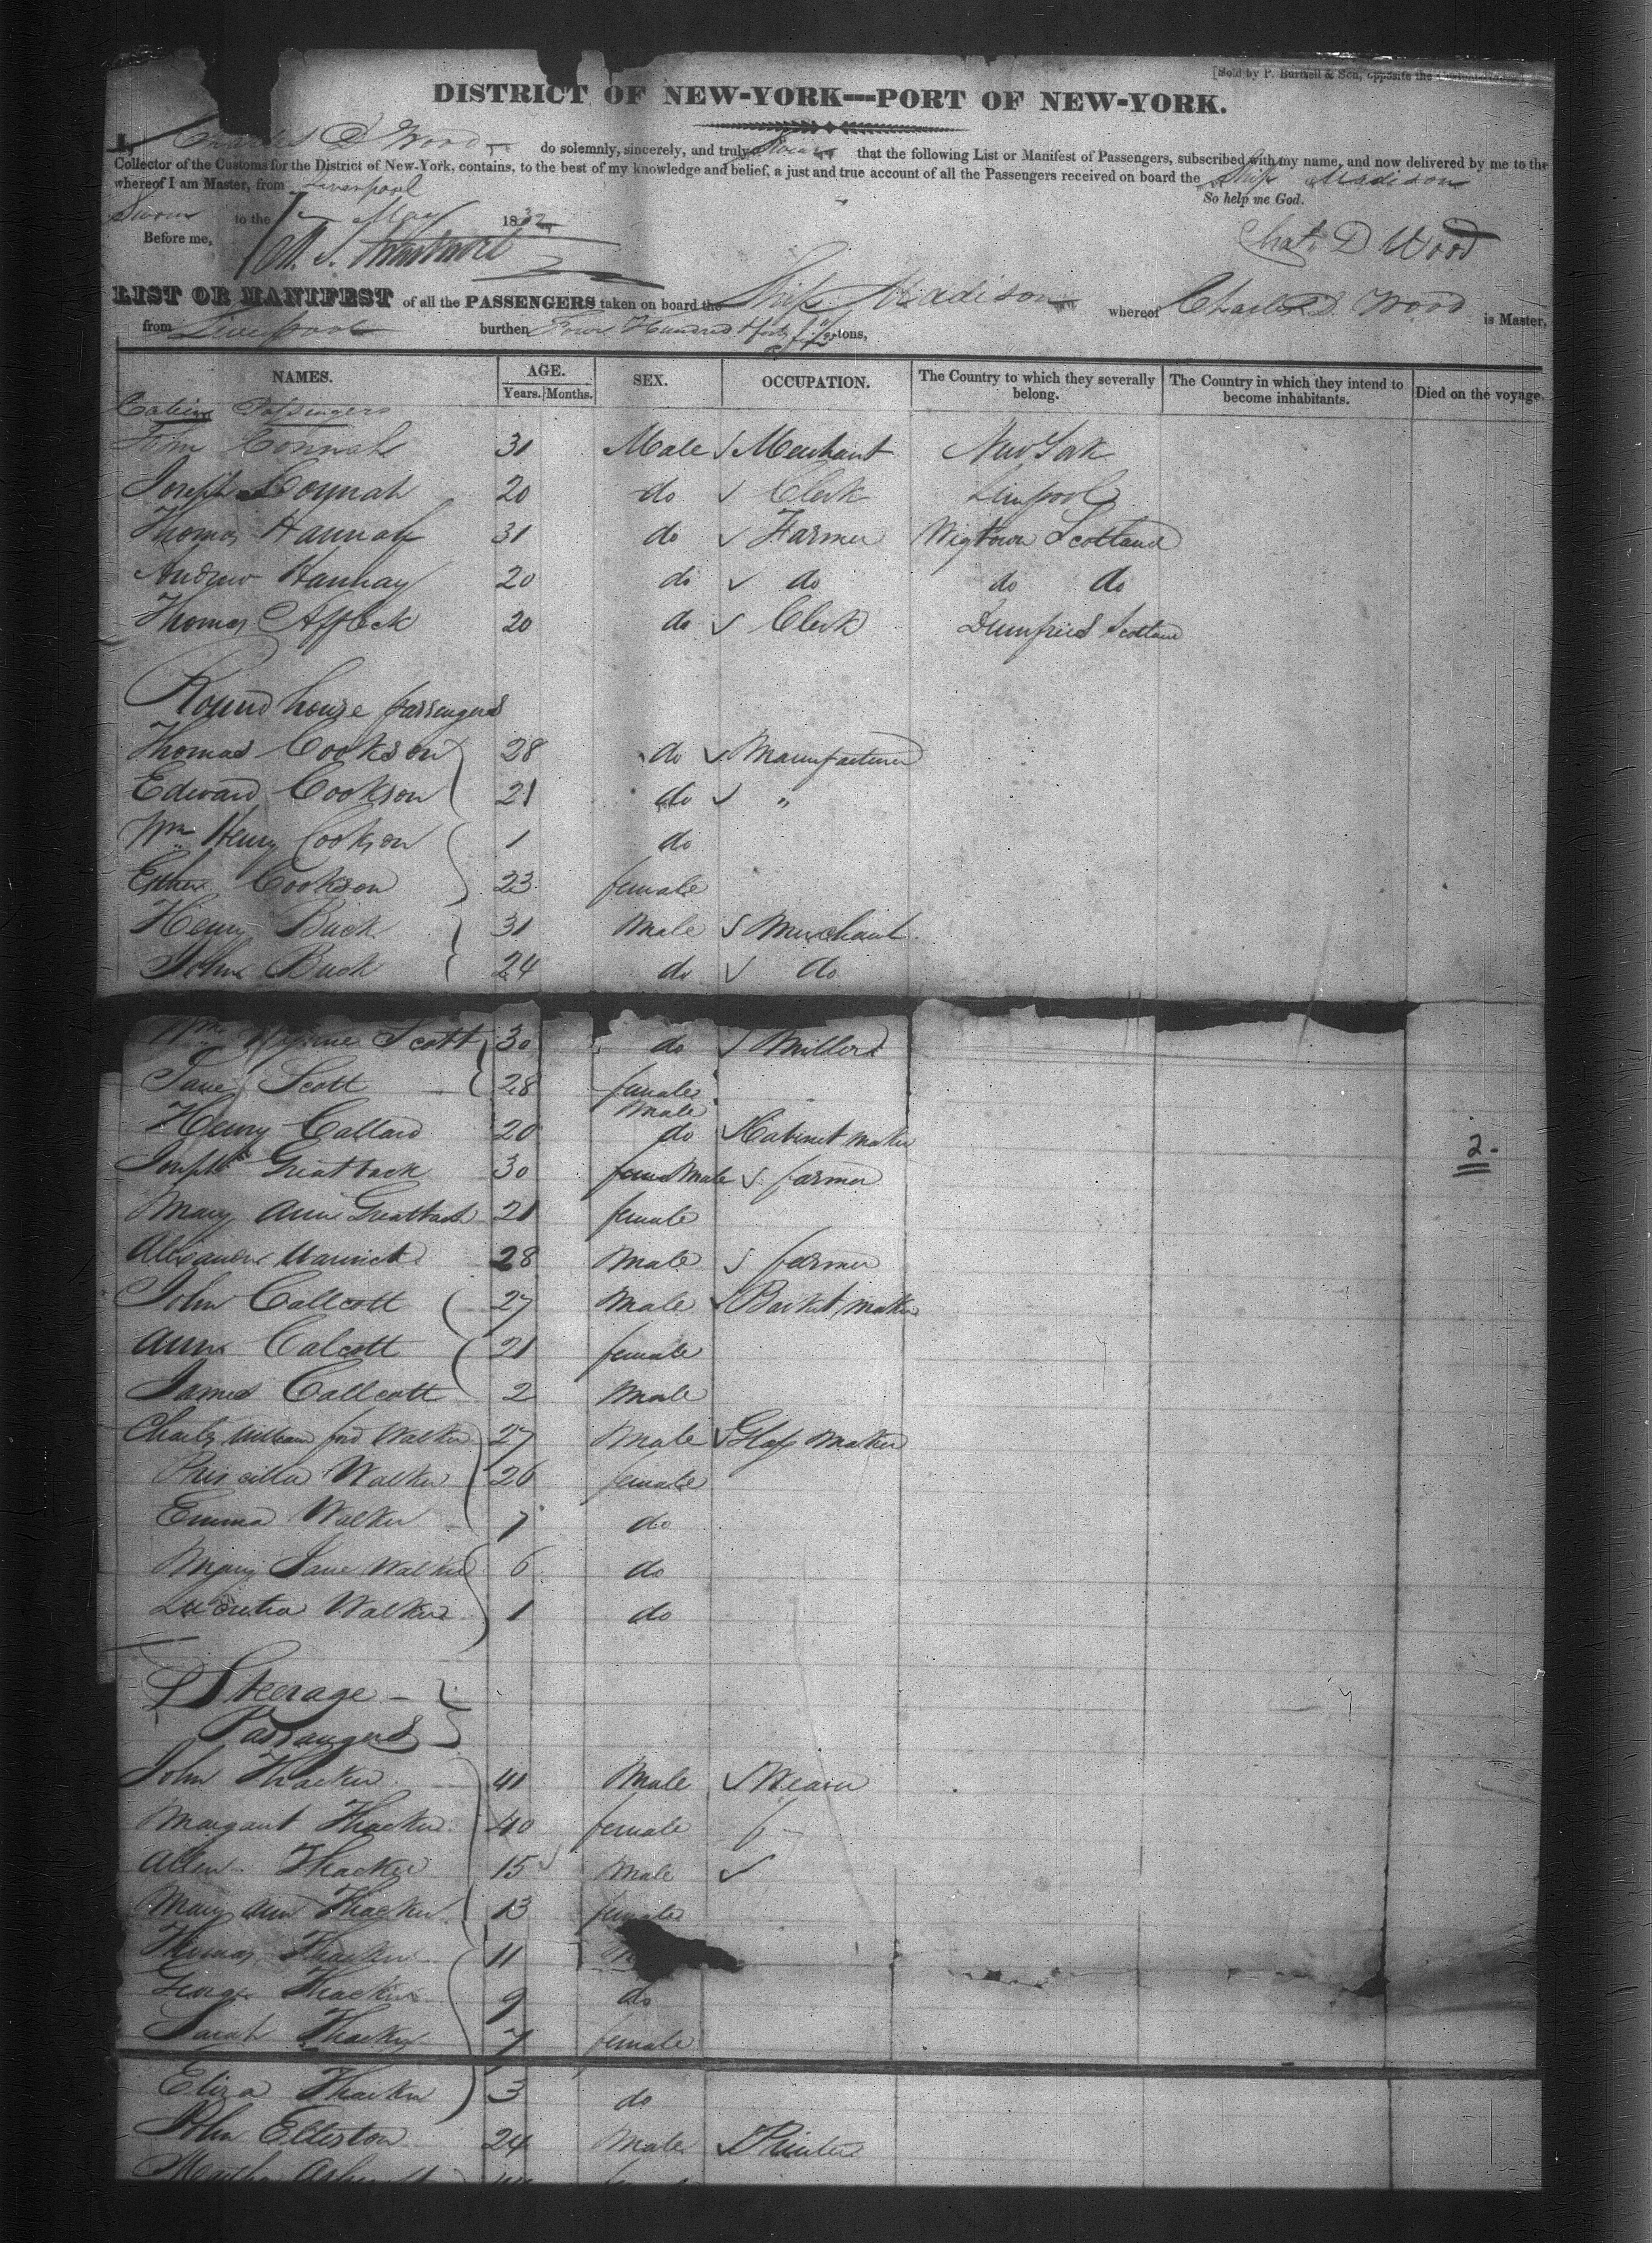 [Sold by P. Burtsell & Son, opposite the
DISTRICT OF NEW-YORK—PORT OF NEW-YORK.
I, Charles D Wood do solemnly, sincerely, and truly swear that the following List or Manifest of Passengers, subscribed with my name, and now delivered by me to the
Collector of the Customs for the District of New-York, contains, to the best of my knowledge and belief, a just and true account of all the Passengers received on board the Ship Madison
whereof I am Master, from Liverpool
So help me God.
Sworn to the May 1832
Before me,
Chas. D Wood
LIST OR MANIFEST of all the PASSENGERS taken on board the Ship Madison whereof Charles D. Wood is Master,
from Liverpool burthen Four Hundred tons,
NAMES. AGE. SEX. OCCUPATION. The Country to which they severally belong. The Country in which they intend to become inhabitants. Died on the voyage.
Years. Months.
Cabin Passengers
John Connah 31 Male Merchant New York
Joseph Connah 20 do Clerk Liverpool
Thomas Hannah 31 do Farmer Wigtown Scotland
Andrew Hannay 20 do do do do
Thomas Affleck 20 do Clerk Dumfries Scotland
Round house passengers
Thomas Cookson 28 do Manufacturer
Edward Cookson 21 do "
Wm Henry Cookson 1 do
Esther Cookson 23 female
Henry Buck 31 Male Merchant
John Buck 24 do do
Wm Scott 30 do Miller
Jane Scott 28 female
Male
Henry Callard 20 do Cabinet maker
Joseph Greatback 30 Male farmer
Mary Ann Greatback 21 female
Alexander Warwick 28 Male farmer
John Callcott 27 Male Basket maker
Ann Calcott 21 female
James Callcott 2 Male
Charles William ford Walker 27 Male Glass Maker
Priscilla Walker 26 female
Emma Walker 7 do
Mary Jane Walker 6 do
Lucretia Walker 1 do
2-
Steerage
Passangers
John Thacker 41 Male Weaver
Margaret Thacker 40 female
Allen Thacker 15 Male
Mary Ann Thacker 13 female
Thomas Thacker 11
George Thacker 9 do
Sarah Thacker 7 female
Eliza Thacker 3 do
John Elliston 24 Male Printer
Martha